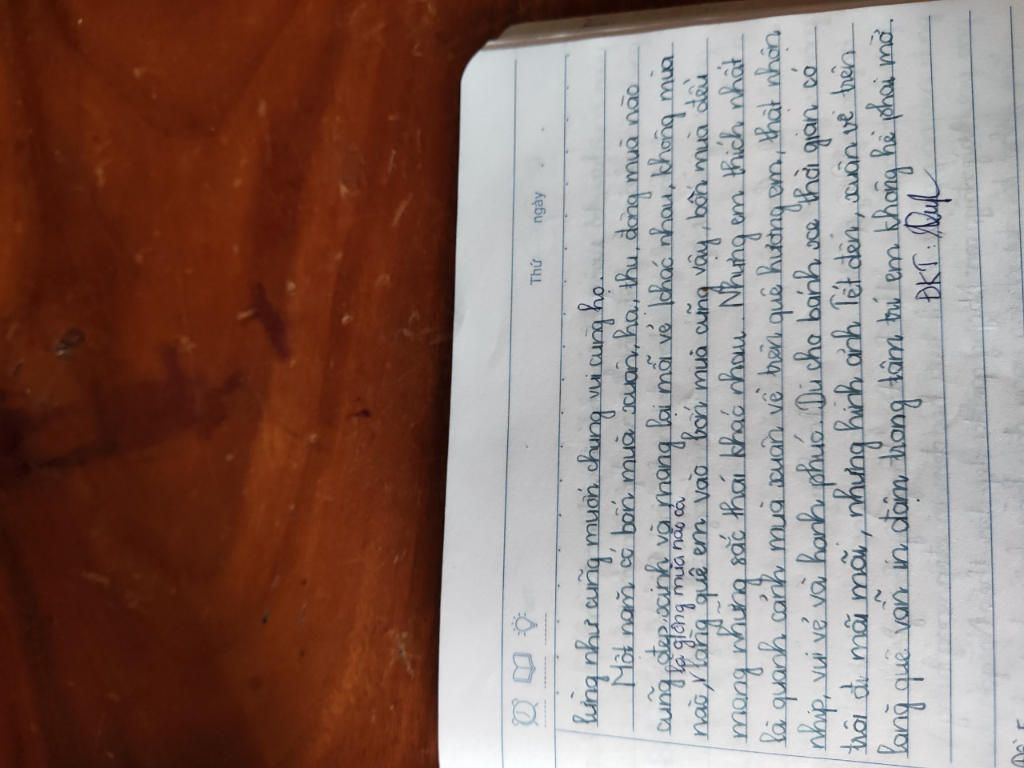 Thứ ngày
lừng như cũng muốn chung vui cùng họ.
Một năm có bốn mùa xuân, hạ, thu, đông mùa nào
cũng đẹp xinh và mang lại mỗi vẻ khác nhau, không mùa
và giống mùa nào cả
nào, làng quê em vào bốn mùa cũng vậy, bốn mùa đều
mang những sắc thái khác nhau. Nhưng em thích nhất
là quanh cảnh mùa xuân về trên quê hương em, thật nhộn
nhịp, vui vẻ và hạnh phúc. Dù cho bánh xe thời gian có
trôi đi mãi mãi, nhưng hình ảnh Tết đến, xuân về trên
làng quê vẫn in đậm trong tâm trí em không hề phai mờ.
ĐKT: